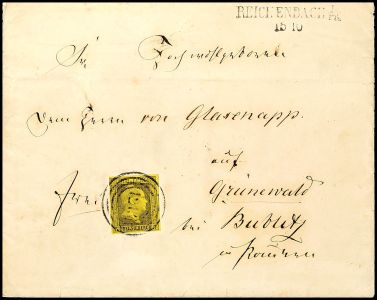 REICHENBACH
15 10
Sr. Hochwohlgeboren
Dem Herrn von Glasenapp.
auf
Frei Grünewald
bei Bublitz
in